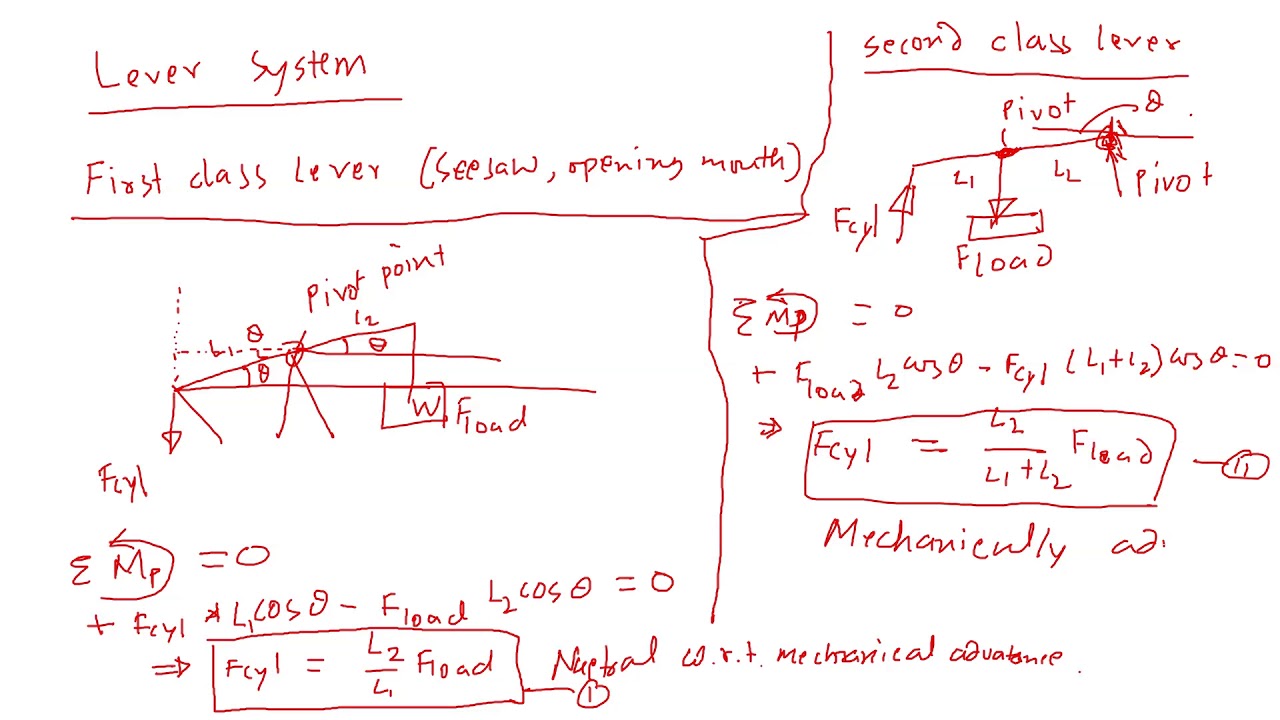 Lever System
First class lever (seesaw, opening mouth)
Pivot point
L1
θ
L2
θ
θ
W
Fload
Fcyl
Σ Mp = 0
+ Fcyl * L1 cosθ - Fload L2 cosθ = 0
⇒ Fcyl = L2/L1 Fload
1
Nuetral w.r.t. mechanical advatance.
second class lever
Pivot
θ
L1
L2
Pivot
Fcyl
Fload
Σ Mp = 0
+ Fload L2 cosθ - Fcyl (L1+L2) cosθ = 0
⇒ Fcyl = L2/L1+L2 Fload
11
Mechanically ad